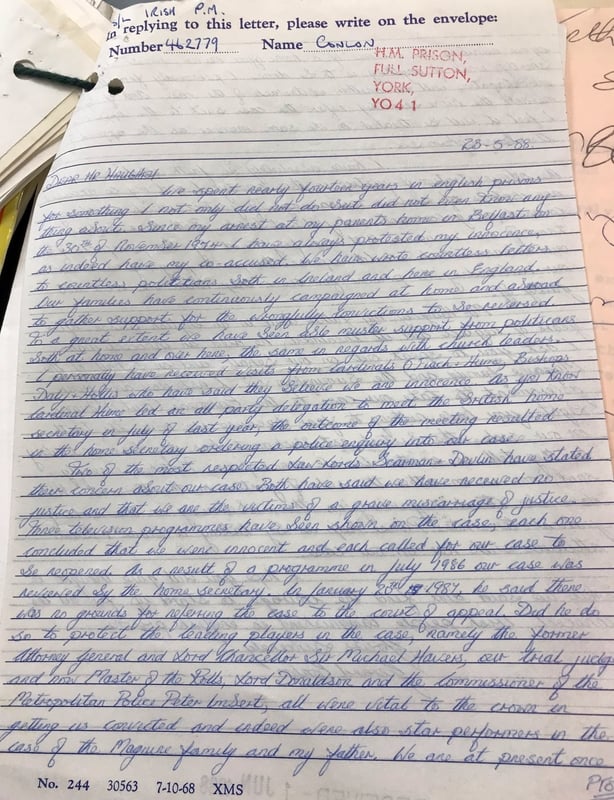 S/L IRISH P.M.
In replying to this letter, please write on the envelope:
Number 462779 Name CONLON
H.M. PRISON,
FULL SUTTON,
YORK,
YO4 1
23-5-88.
Dear Mr Haughey
We spent nearly fourteen years in english prisons
for something I not only did not do but did not even know any
thing about. Since my arrest at my parents home in Belfast on
the 30th of November 1974 I have always protested my innocence,
as indeed have my co-accused. We have wrote countless letters
to countless politicians both in Ireland and here in England
Our families have continuously campaigned at home and abroad
to gather support for the wrongfully convictions to be reversed
to a great extent we have been able muster support from politicans
both at home and over here, the same in regards with church leaders.
I personally have received visits from Cardinals O'Fiach + Hume, Bishops
Daly + Hollis who have said they believe we are innocence. As you know
Cardinal Hume led an all party delegation to meet the British home
secretary in July of last year, the outcome of the meeting resulted
in the home secretary ordering a police enquiry into our case.
Two of the most respected Law Lords Scarman + Devlin have stated
their concern about our case. Both have said we have received no
justice and that we are the victims of a grave miscarriage of justice.
Three television programmes have been shown on the case, each one
concluded that we were innocent and each called for our case to
be reopened. As a result of a programme in July 1986 our case was
reviewed by the home secretary. In January 20th 1987 he said there
was no grounds for referring the case to the court of appeal. Did he do
so to protect the leading players in the case, namely the former
Attorney General and Lord Chancellor Sir Michael Havers, our trial judge
and now Master of the Rolls, Lord Donaldson and the Commissioner of the
Metropolitan Police Peter Imbert, all were vital to the crown in
getting us convicted and indeed were also star performers in the
case of the Maguire family and my father. We are at present once
PTO
No. 244 30563 7-10-68 XMS